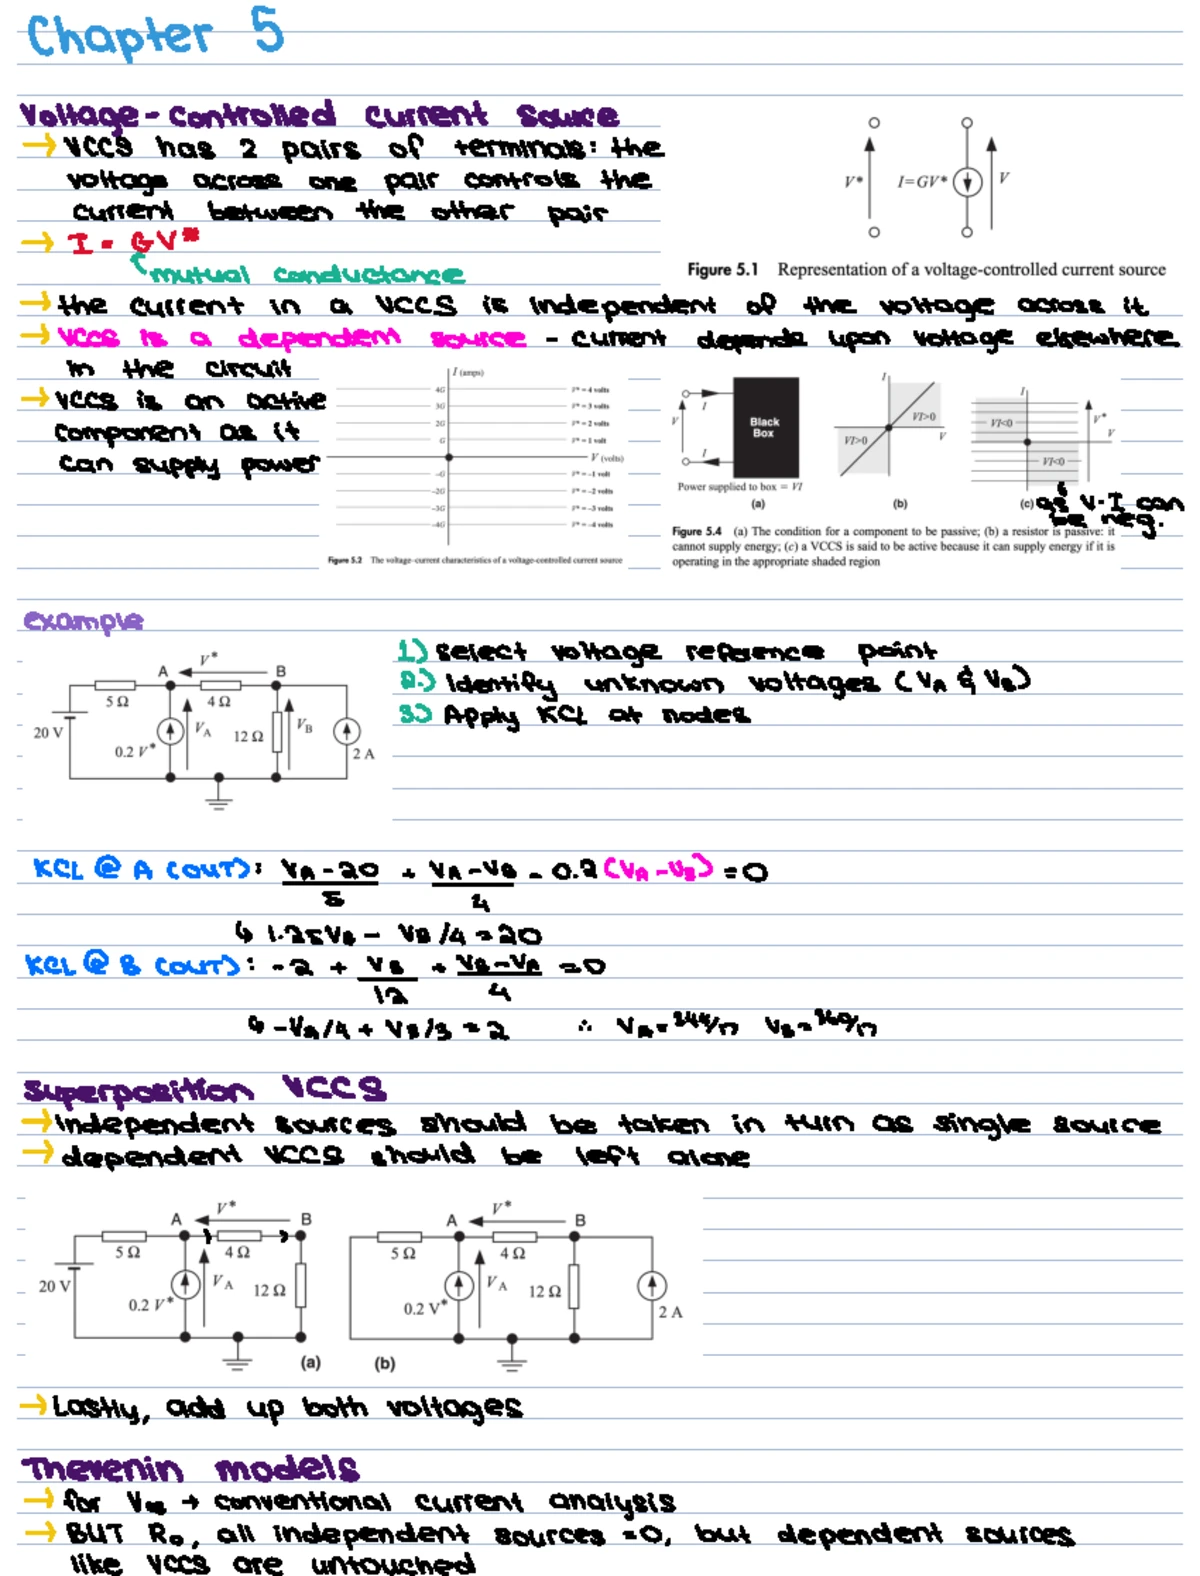 Chapter 5
Voltage-controlled current source
→ VCCS has 2 pairs of terminals: the
voltage across one pair controls the
current between the other pair
→ I = GV*
mutual conductance
V*
I=GV*
V
Figure 5.1 Representation of a voltage-controlled current source
→ the current in a VCCS is independent of the voltage across it
→ VCCS is a dependent source - current depends upon voltage elsewhere
in the circuit
→ VCCS is an active
component as it
can supply power
I (amps)
4G V* = 4 volts
3G V* = 3 volts
2G V* = 2 volts
G V* = 1 volt
V (volts)
-G V* = -1 volt
-2G V* = -2 volts
-3G V* = -3 volts
-4G V* = -4 volts
Figure 5.2 The voltage-current characteristics of a voltage-controlled current source
I
V
I
Black
Box
Power supplied to box = VI
(a)
I
VI>0
VI>0
V
(b)
I
VI<0
V*
V
VI<0
(c) as V·I can
be neg.
Figure 5.4 (a) The condition for a component to be passive; (b) a resistor is passive: it
cannot supply energy; (c) a VCCS is said to be active because it can supply energy if it is
operating in the appropriate shaded region
example
V*
A B
5 Ω 4 Ω
20 V
0.2 V*
VA
12 Ω
VB
2 A
1) Select voltage reference point
2.) Identify unknown voltages (VA & VB)
3) Apply KCL at nodes
KCL @ A (OUT): VA-20/5 + VA-VB/4 - 0.2(VA-VB) = 0
↳ 1.25VA - VB/4 = 20
KCL @ B (OUT): -2 + VB/12 + VB-VA/4 = 0
↳ -VA/4 + VB/3 = 2 ∴ VA = 344/17 VB = 360/17
Superposition VCCS
→ Independent sources should be taken in turn as single source
→ dependent VCCS should be left alone
V*
A B
5 Ω 4 Ω
20 V
0.2 V*
VA
12 Ω
(a)
V*
A B
5 Ω 4 Ω
0.2 V*
VA
12 Ω
2 A
(b)
→ Lastly, add up both voltages
Thevenin models
→ for Voc → conventional current analysis
→ BUT Ro, all independent sources =0, but dependent sources
like VCCS are untouched